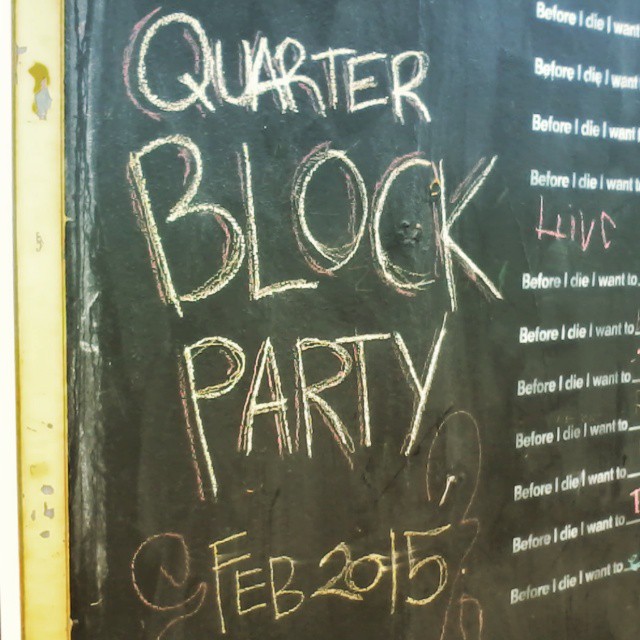 QUARTER
BLOCK
PARTY
FEB 2015
Before I die I want
Before I die I want
Before I die I want
Before I die I want
LIVE
Before I die I want to
Before I die I want to
Before I die I want to
Before I die I want to
Before I die I want to
Before I die I want to
Before I die I want to